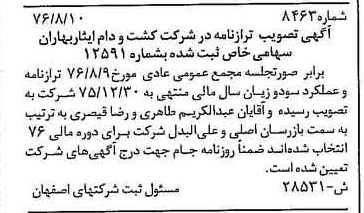 شماره ۸۴۶۳ ۷۶/۸/۱۰
آگهی تصویب ترازنامه در شرکت کشت و دام ایثار بهاران
سهامی خاص ثبت شده بشماره ۱۲۵۹۱
برابر صورتجلسه مجمع عمومی عادی مورخ ۷۶/۸/۹ ترازنامه
و عملکرد سود و زیان سال مالی منتهی به ۷۵/۱۲/۳۰ شرکت به
تصویب رسیده و آقایان عبدالکریم طاهری و رضا قیصری به ترتیب
به سمت بازرسان اصلی و علی‌البدل شرکت برای دوره مالی ۷۶
انتخاب شده‌اند ضمناً روزنامه جام جهت درج آگهی‌های شرکت
تعیین شده است.
ش-۲۸۵۳۱ مسئول ثبت شرکتهای اصفهان